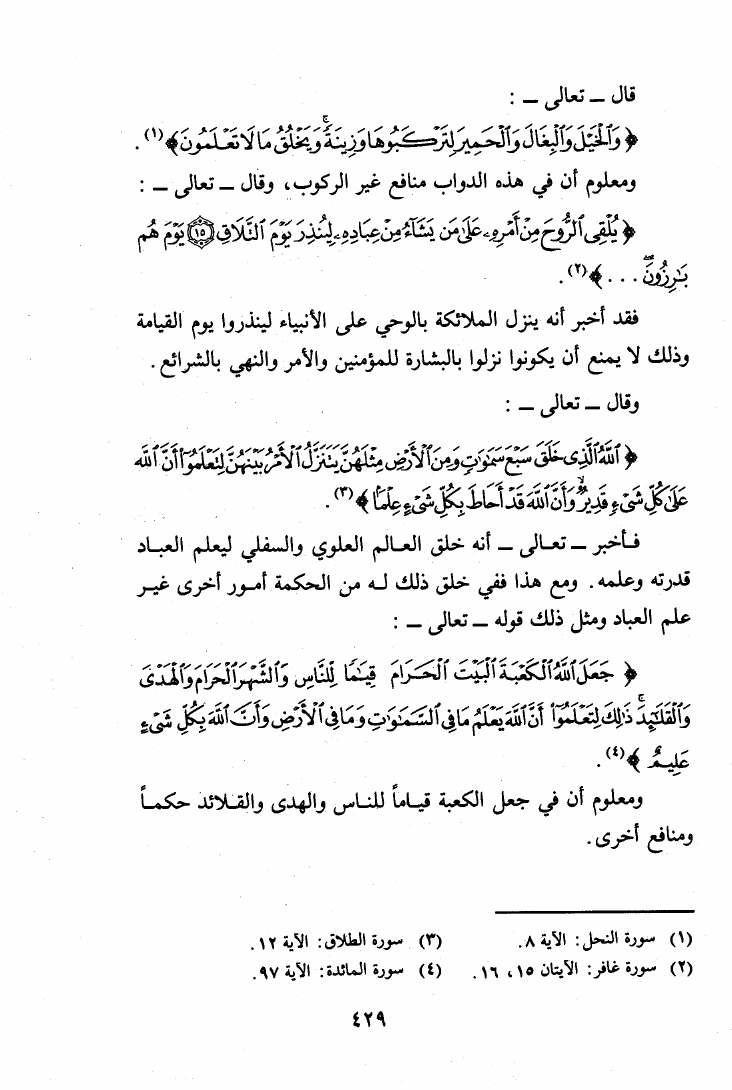 قال ــ تعالى ــ :
﴿ وَٱلْخَيْلَ وَٱلْبِغَالَ وَٱلْحَمِيرَ لِتَرْكَبُوهَا وَزِينَةً ۚ وَيَخْلُقُ مَا لَا تَعْلَمُونَ ﴾(١) .
ومعلوم أن في هذه الدواب منافع غير الركوب، وقال ــ تعالى ــ :
﴿ يُلْقِى ٱلرُّوحَ مِنْ أَمْرِهِۦ عَلَىٰ مَن يَشَآءُ مِنْ عِبَادِهِۦ لِيُنذِرَ يَوْمَ ٱلتَّلَاقِ ۝١٥ يَوْمَ هُم
بَـٰرِزُونَ ۖ . . . ﴾(٢) .
فقد أخبر أنه ينزل الملائكة بالوحي على الأنبياء لينذروا يوم القيامة
وذلك لا يمنع أن يكونوا نزلوا بالبشارة للمؤمنين والأمر والنهي بالشرائع .
وقال ــ تعالى ــ :
﴿ ٱللَّهُ ٱلَّذِى خَلَقَ سَبْعَ سَمَـٰوَٰتٍ وَمِنَ ٱلْأَرْضِ مِثْلَهُنَّ يَتَنَزَّلُ ٱلْأَمْرُ بَيْنَهُنَّ لِتَعْلَمُوٓا۟ أَنَّ ٱللَّهَ
عَلَىٰ كُلِّ شَىْءٍ قَدِيرٌ ۙ وَأَنَّ ٱللَّهَ قَدْ أَحَاطَ بِكُلِّ شَىْءٍ عِلْمًا ﴾(٣) .
فـأخبر ــ تعـالى ــ أنه خلق العـالم العلوي والسفلي ليعلم العبـاد
قدرته وعلمه . ومع هذا ففي خلق ذلك لـه من الحكمة أمـور أخرى غيـر
علم العباد ومثل ذلك قوله ــ تعالى ــ :
﴿ جَعَلَ ٱللَّهُ ٱلْكَعْبَةَ ٱلْبَيْتَ ٱلْحَـرَامَ قِيَـٰمًا لِّلنَّاسِ وَٱلشَّهْرَ ٱلْحَرَامَ وَٱلْهَدْىَ
وَٱلْقَلَـٰٓئِدَ ۚ ذَٰلِكَ لِتَعْلَمُوٓا۟ أَنَّ ٱللَّهَ يَعْلَمُ مَا فِى ٱلسَّمَـٰوَٰتِ وَمَا فِى ٱلْأَرْضِ وَأَنَّ ٱللَّهَ بِكُلِّ شَىْءٍ
عَلِيمٌ ﴾(٤) .
ومعلوم أن في جعل الكعبة قيـاماً للناس والهدى والقـلائد حكمـاً
ومنافع أخرى .
(١) سورة النحل: الآية ٨.
(٢) سورة غافر: الآيتان ١٥، ١٦.
(٣) سورة الطلاق: الآية ١٢.
(٤) سورة المائدة: الآية ٩٧.
٤٢٩